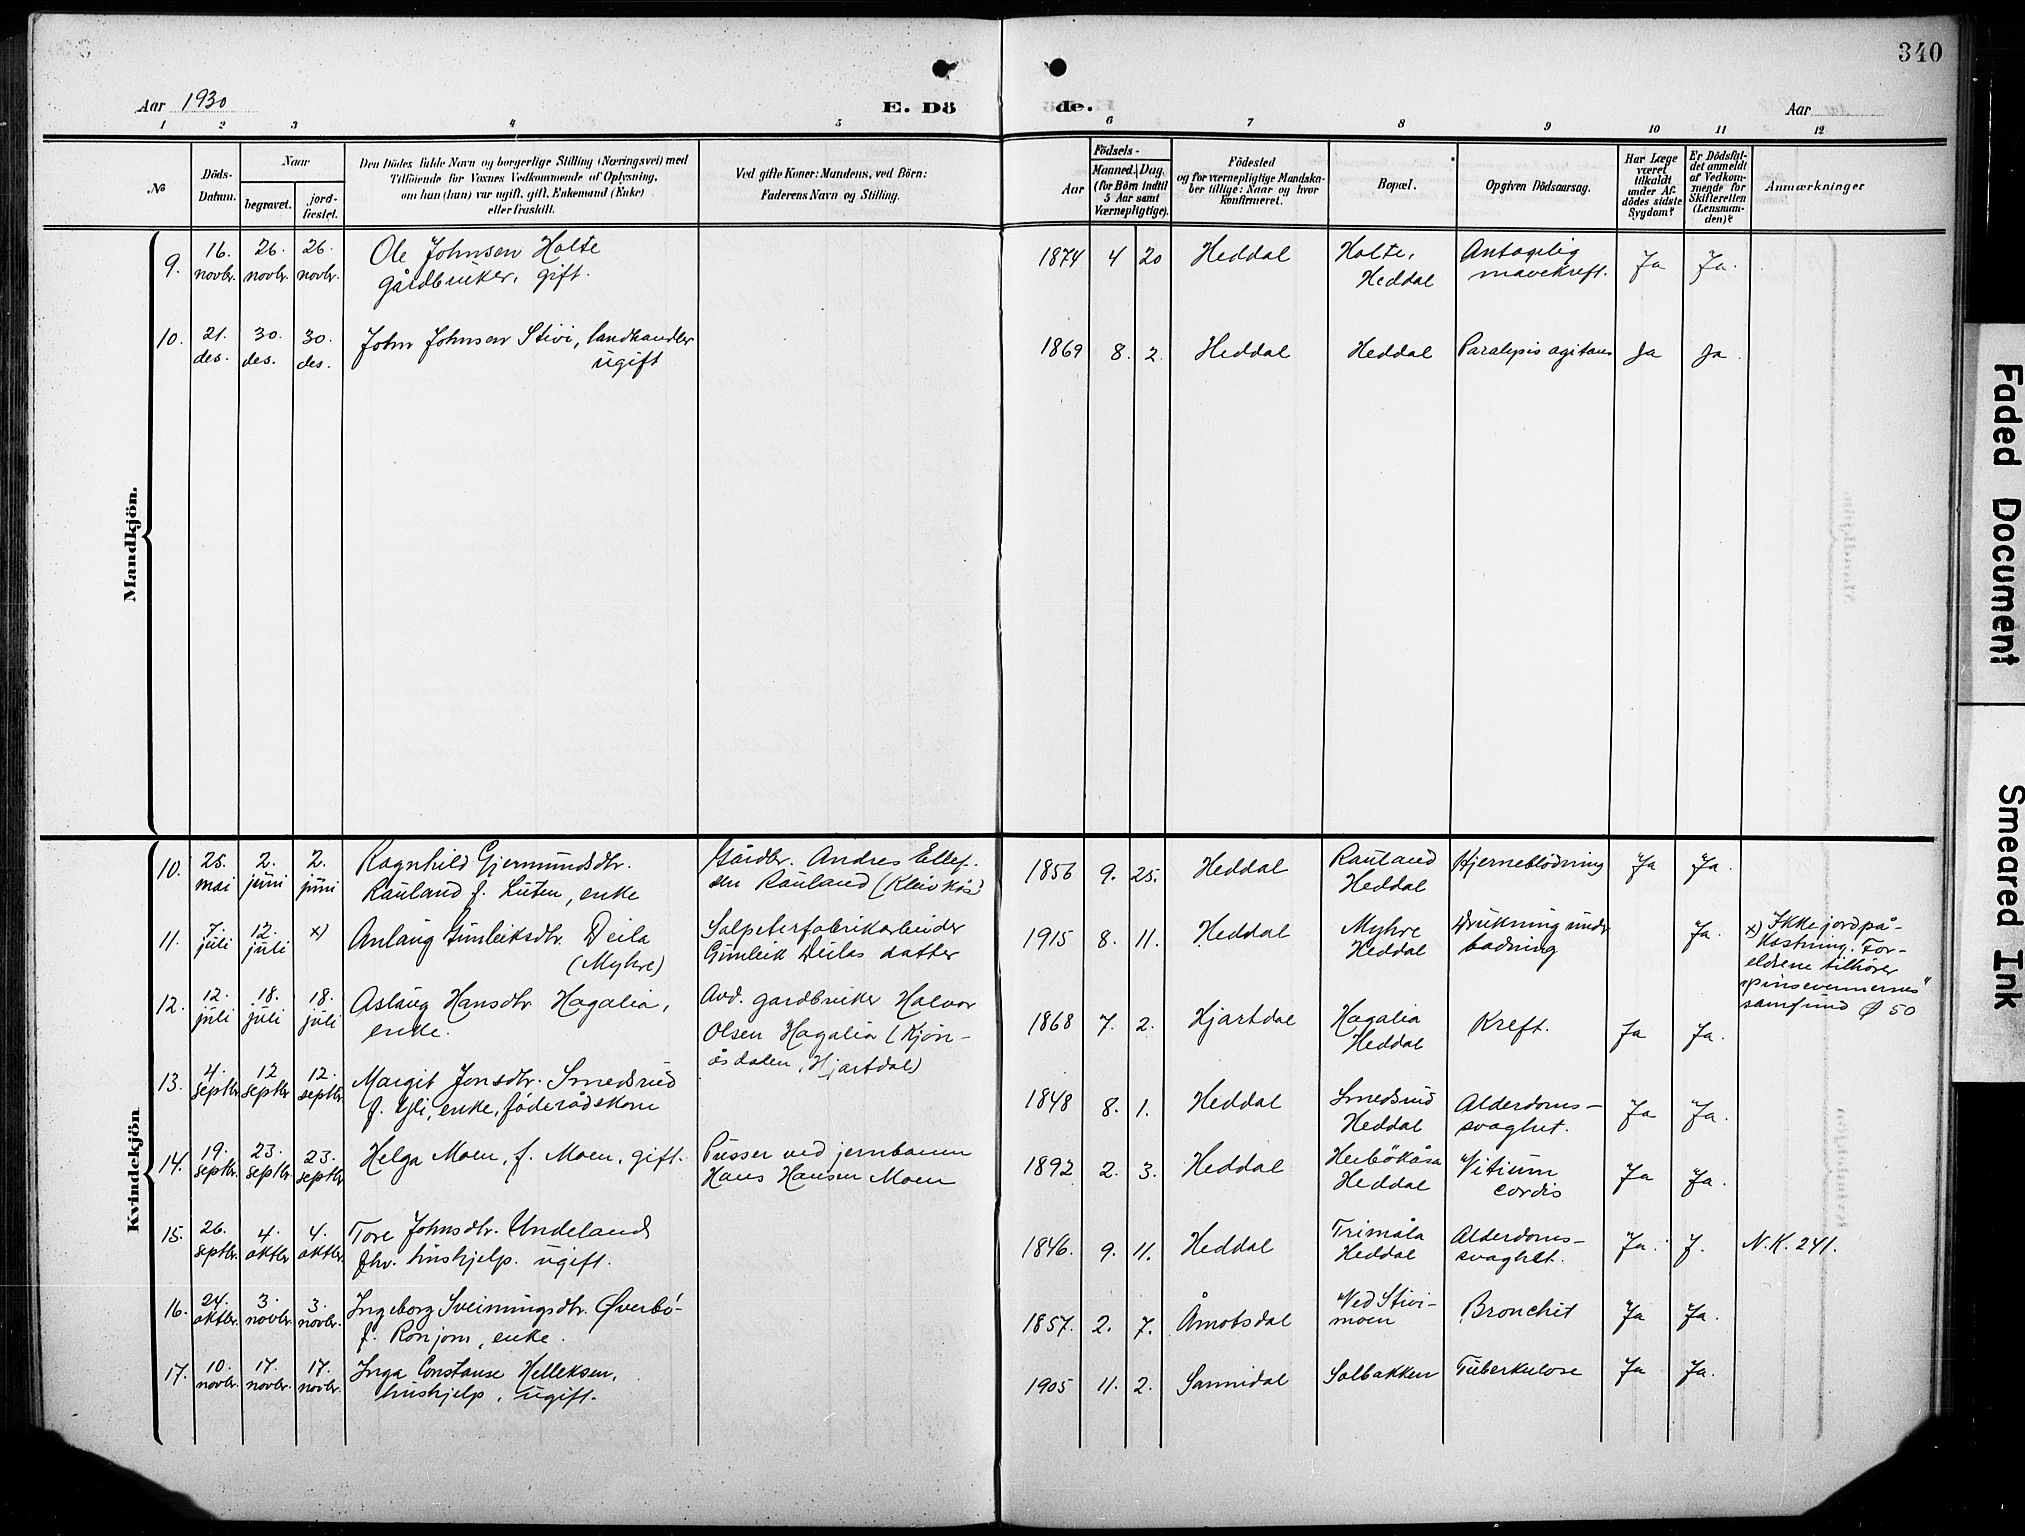 340
Aar 1930
E. Dö
de.
Aar
1 2 3 4 5 6 7 8 9 10 11 12
No
Döds-
Datum.
Naar
begravet.
jord-
fæstet.
Den Dödes fulde Navn og borgerlige Stilling (Næringsvei) med
Tilföiende for Voxnes Vedkommende af Oplysning,
om han (hun) var ugift, gift, Enkemand (Enke)
eller fraskilt.
Ved gifte Koner: Mandens, ved Börn:
Faderens Navn og Stilling.
Födsels-
Aar
Maaned. Dag.
(for Börn indtil
5 Aar samt
Værnepligtige).
Födested
og for værnepligtige Mandska-
ber tillige: Naar og hvor
konfirmeret.
Bopæl.
Opgiven Dödsaarsag.
Har Læge
været
tilkaldt
under Af-
dödes sidste
Sygdom?
Er Dödsfal-
det anmeldt
af Vedkom-
mende for
Skifteretten
(Lensman-
den)?
Anmærkninger
Mandkjön.
9. 16. novbr. 26. novbr. 26. novbr.
Ole Johnsen Holte
gårdbruker, gift.
1874 4 20 Heddal
Holte,
Heddal
Antagelig
mavekreft.
Ja Ja.
10. 21. des. 30. des. 30. des.
John Johnsen Stivi, landhandler
ugift
1869 8. 2. Heddal Heddal Paralysis agitans Ja Ja.
Kvindekjön
10. 25. mai 2. juni 2. juni
Ragnhild Gjermundsdtr.
Rauland f. Luten, enke
Gårdbr. Andres Ellef-
sen Rauland (Kleivkås)
1856 9. 25. Heddal
Rauland
Heddal
Hjerneblödning Ja Ja.
11. 7. juli 12. juli x)
Anlaug Gunleiksdtr. Deila
(Myhre)
Salpeterfabrikarbeider
Gunleik Deilas datter
1915 8. 11. Heddal
Myhre
Heddal
Drukning under
badning
Ja.
x) Ikke jordpå-
kastning. For-
eldrene tilhører
"pinsevennernes"
samfund Ø 50
12. 12. juli 18. juli 18. juli
Aslaug Hansdtr Hagalia,
enke.
Avd. gardbruker Halvor
Olsen Hagalia (Kjøn-
åsdalen, Hjartdal)
1868 7. 2. Hjartdal
Hagalia
Heddal
Kreft. Ja Ja.
13. 4. septbr. 12 septbr 12. septbr
Margit Jonsdtr. Smedsrud
f. Yli, enke, föderådskone
1848 8. 1. Heddal
Smedsrud
Heddal
Alderdoms-
svaghet.
Ja Ja.
14. 19. septbr. 23. septbr. 23. septbr
Helga Moen, f. Moen, gift.
Pusser ved jernbanen
Hans Hansen Moen
1892 2. 3. Heddal
Heddal
Vitium
cordis
Ja Ja.
15. 26. septbr. 4. oktbr 4. oktbr.
Tore Johnsdtr. Undeland
fhv. hushjelp. ugift.
1846. 9. 11. Heddal
Trimåla
Heddal
Alderdoms-
svaghet.
Ja. J. N.K. 241.
16. 24. oktbr. 3. novbr. 3. novbr.
Ingeborg Sveinungsdtr. Øverbö-
f. Ronjom, enke.
1857. 2. 7. Åmotsdal
Ved Stivi-
moen
Bronchit Ja Ja.
17. 10. novbr. 17. novbr. 17. novbr.
Inga Constanse Helleksen,
hushjelp, ugift.
1905 11. 2. Sannidal Solbakken Tuberkulose Ja Ja.
Faded Document
Smeared Ink